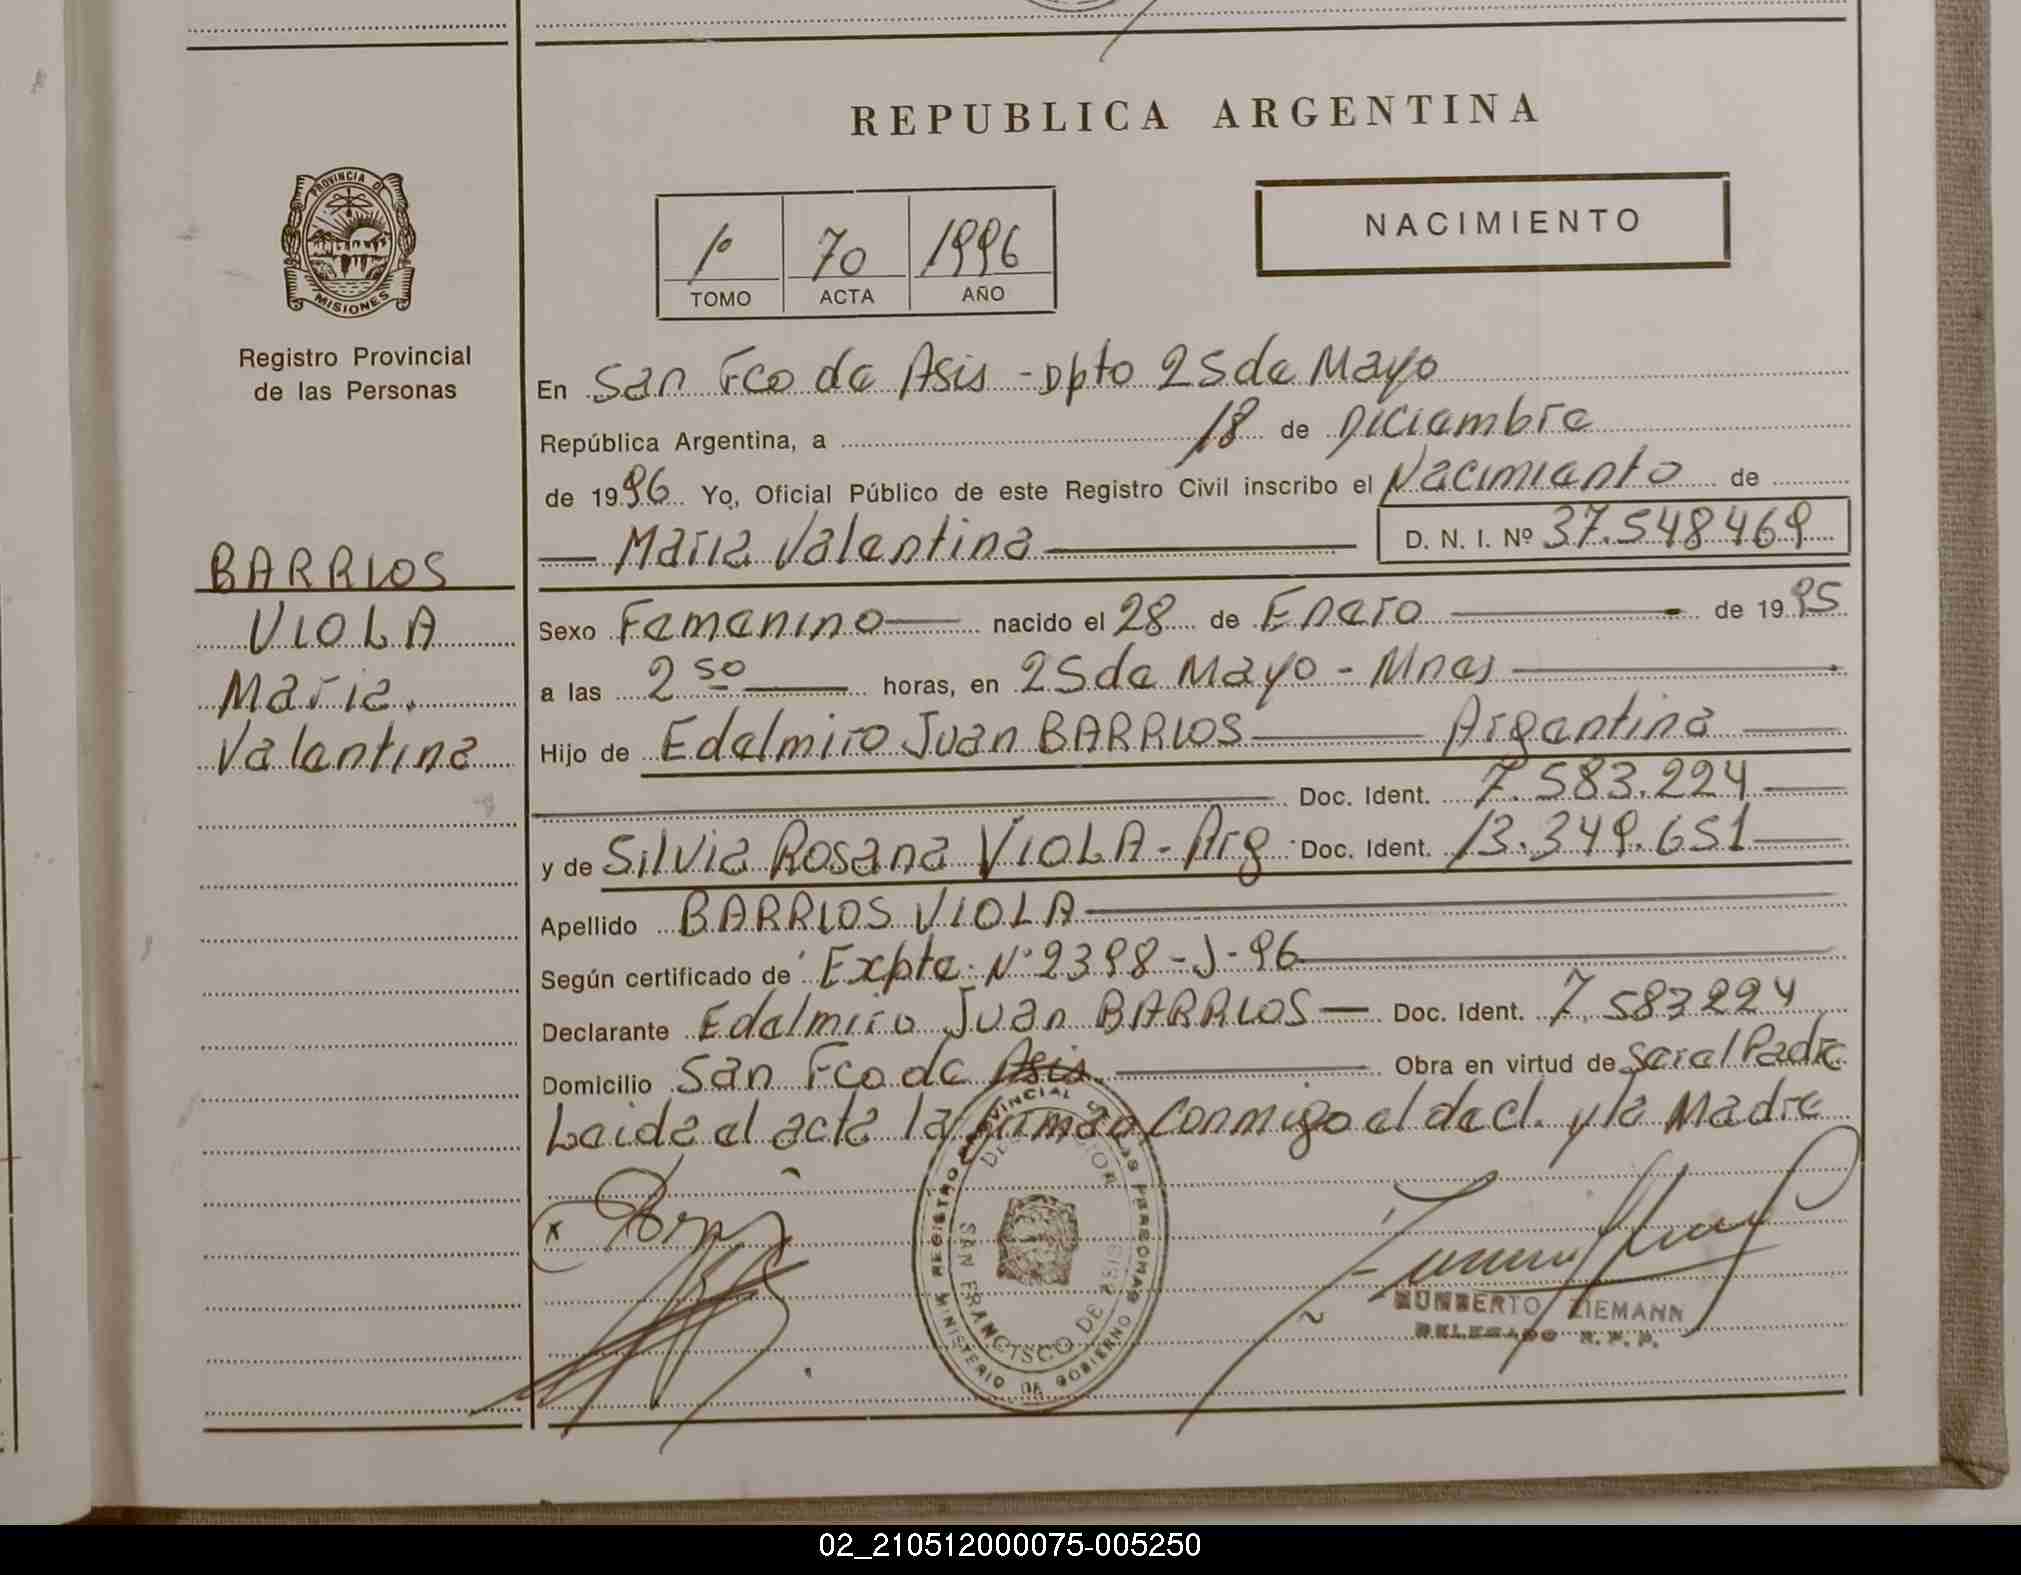 REPUBLICA ARGENTINA
PROVINCIA DE
MISIONES
Registro Provincial
de las Personas
NACIMIENTO
1º 70 1996
TOMO ACTA AÑO
En San Fco de Asis - Dpto 25 de Mayo
República Argentina, a 18 de Diciembre
de 1996 Yo, Oficial Público de este Registro Civil inscribo el Nacimiento de
Maria Valentina D. N. I. Nº 37.548469
BARRIOS
VIOLA
Maria
Valentina
Sexo Femenino nacido el 28 de Enero de 1995
a las 2 50 horas, en 25 de Mayo - Mnes
Hijo de Edelmiro Juan BARRIOS Argentina
Doc. Ident. 7.583.224
y de Silvia Rosana VIOLA - Arg Doc. Ident. 13.349.651
Apellido BARRIOS VIOLA
Según certificado de Expte. Nº 2398-J-96
Declarante Edelmiro Juan BARRIOS Doc. Ident. 7.583224
Domicilio San Fco de Asis Obra en virtud de ser el Padre
Leida el acta la firman conmigo el decl. y la Madre
REGISTRO PROVINCIAL DE LAS PERSONAS
SAN FRANCISCO DE ASIS
MINISTERIO DE GOBIERNO
HUMBERTO ZIEMANN
DELEGADO R. P. P.
02_210512000075-005250